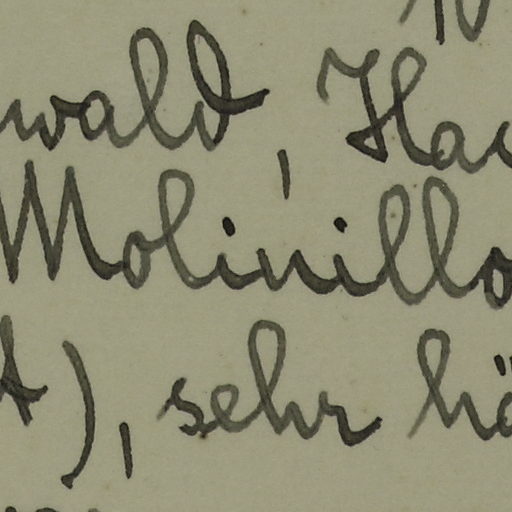 wald, Ha
Molinillo
t), sehr hä